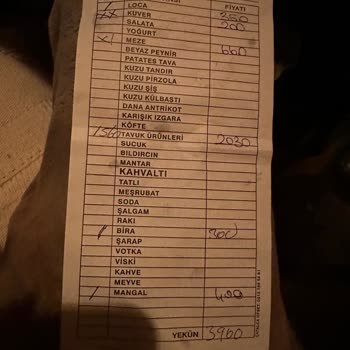 FİYATI
LOCA
KUVER 350
SALATA 200
YOĞURT
MEZE
BEYAZ PEYNİR 660
PATATES TAVA
KUZU TANDIR
KUZU PİRZOLA
KUZU ŞİŞ
KUZU KÜLBASTI
DANA ANTRİKOT
KARIŞIK IZGARA
KÖFTE
TAVUK ÜRÜNLERİ 2030
SUCUK
BILDIRCIN
MANTAR
KAHVALTI
TATLI
MEŞRUBAT
SODA
ŞALGAM
RAKI
BİRA 300
ŞARAP
VOTKA
VİSKİ
KAHVE
MEYVE
MANGAL 400
YEKÜN 3960